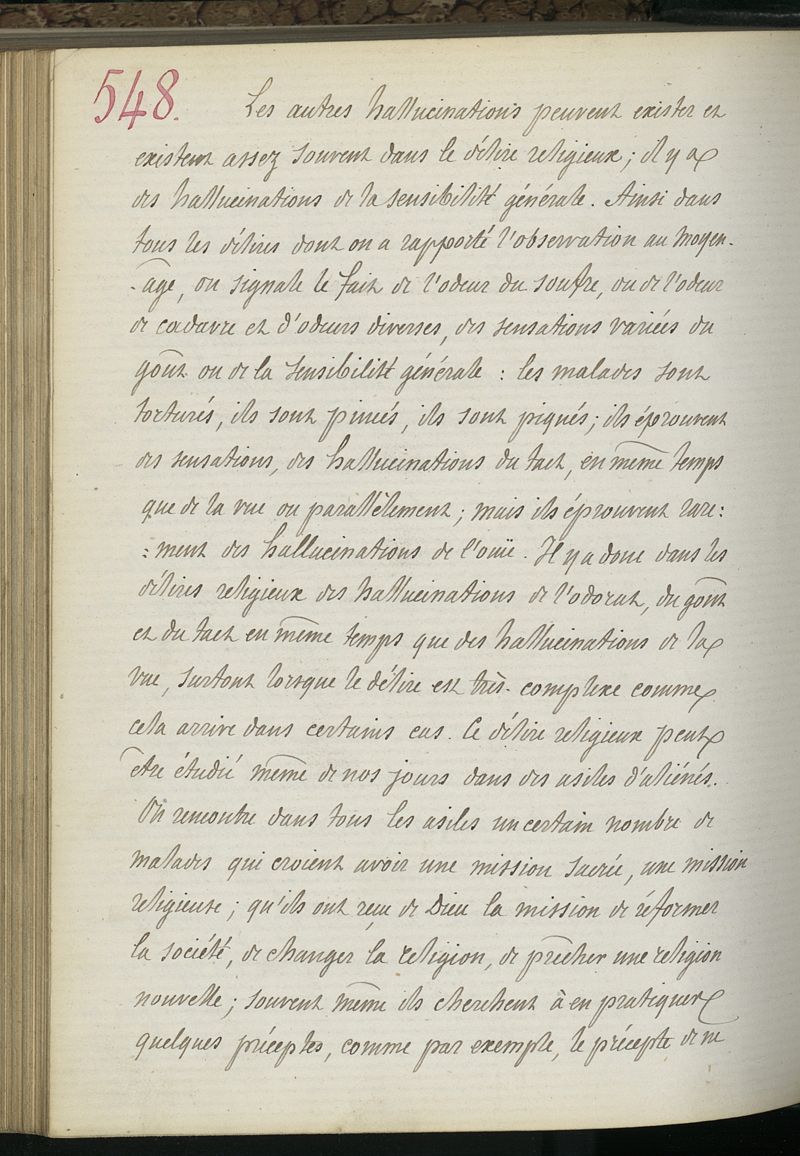 548.
Les autres hallucinations peuvent exister et
existent assez souvent dans le délire religieux; il y a
des hallucinations de la sensibilité générale. Ainsi dans
tous les délires dont on a rapporté l'observation au Moyen-
-age, on signale le fait de l'odeur du soufre, ou de l'odeur
de cadavre et d'odeurs diverses, des sensations variées du
goût ou de la sensibilité générale : les malades sont
torturés, ils sont pincés, ils sont piqués; ils éprouvent
des sensations, des hallucinations du tact, en même temps
que de la vue ou parallèlement; mais ils éprouvent rare:
:ment des hallucinations de l'ouïe. Il y a donc dans les
délires religieux des hallucinations de l'odorat, du goût
et du tact en même temps que des hallucinations de la
vue, surtout lorsque le délire est très-complexe comme
cela arrive dans certains cas. Ce délire religieux peut
être étudié même de nos jours dans des asiles d'aliénés.
On rencontre dans tous les asiles un certain nombre de
malades qui croient avoir une mission sacrée, une mission
religieuse; qu'ils ont reçu de Dieu la mission de réformer
la société, de changer la religion, de prêcher une religion
nouvelle; souvent même ils cherchent à en pratiquer
quelques préceptes, comme par exemple, le précepte de ne